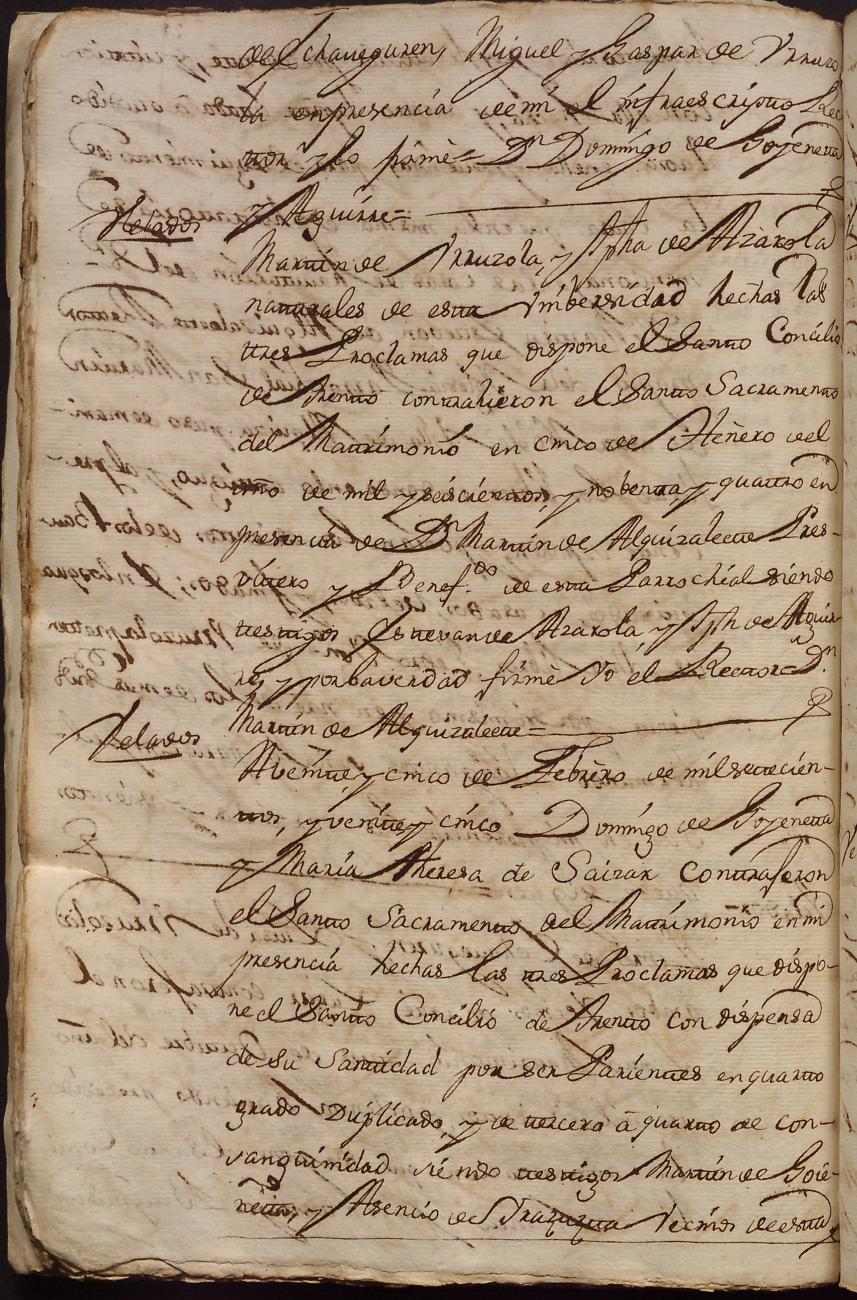 de Echaueguren, Miguel y Gaspar de Vrruzo
la en presencia de mi el infraescripto Rec
tor y lo firmè = Dn Domingo de Goyeneta
y Aguirre =
Velados
Martin de Vrruzola, y Jpha de Azarola
naturales de esta Vmbersidad hechas las
tres Proclamas que dispone el Santo Concilio
de Trento contraxieron el Santo Sacramento
del Matrimonio en cinco de Henero del
año de mil y seiscientos, y nobenta, y quattro en
presencia de Dn Martin de Alquizalete Pres-
vitero y Benef.do de esta Parrochial siendo
testigos Estevan de Azarola, y Jph de Aguir-
re, y por la verdad firmè Yo el Rector = Dn
Martin de Alquizalete =
Velados
A veinte, y cinco de Febrero de mil setecien-
tos, y veinte y cinco Domingo de Goyeneta
y Maria Theresa de Saizar contrajeron
el Santo Sacramento del Matrimonio en mi
presencia hechas las tres Proclamas que dispo-
ne el Santo Concilio de Trento con dispensa
de su Santidad por ser Parientes en quarto
grado Duplicado, y de tercero â quarto de con-
sanguinidad siendo testigos Martin de Goie-
neta, y Asencio de Vecinos de esta